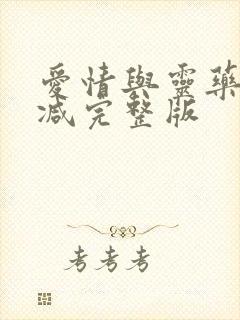 愛情與靈藥
减完整版
考考考